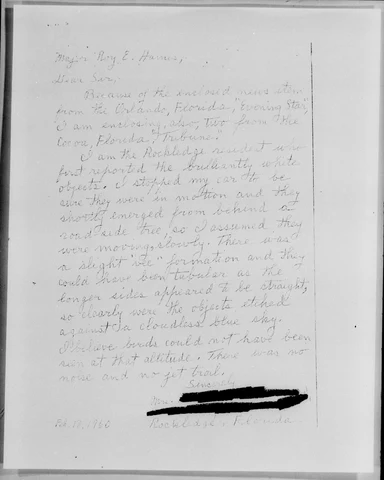 Major Roy E. Harris,
Dear Sir,
Because of the enclosed news item
from the Orlando, Florida, "Evening Star,"
I am enclosing, also, two from "The
Cocoa, Florida, Tribune."
I am the Rockledge resident who
first reported the brilliantly white
objects. I stopped my car to be
sure they were in motion and they
shortly emerged from behind a
road side tree, so I assumed they
were moving, slowly. There was
a slight "vee" formation and they
could have been tubular as the
longer sides appeared to be straight,
so clearly were the objects etched
against a cloudless blue sky.
I believe birds could not have been
seen at that altitude. There was no
noise and no jet trail.
Sincerely
Rockledge, Florida